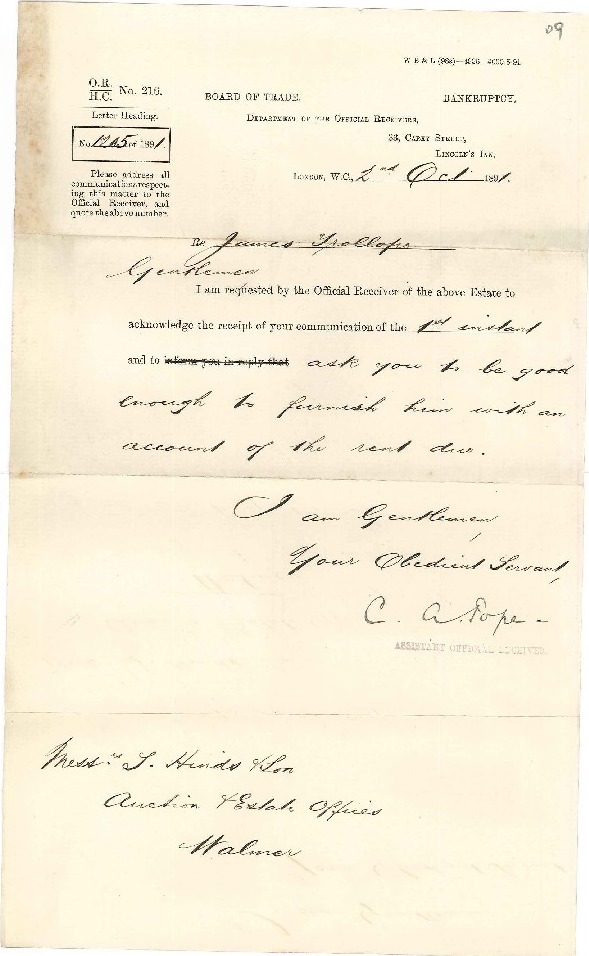 09
W B & L (96s)—4926 4000 5-91
O.R.
H.C. No. 216.
BOARD OF TRADE.
BANKRUPTCY.
Letter Heading.
DEPARTMENT OF THE OFFICIAL RECEIVERS,
33, CAREY STREET,
LINCOLN'S INN,
LONDON, W.C., 2nd Oct 1891
No. 1265 of 1891.
Please address all
communications respect-
ing this matter to the
Official Receiver, and
quote the above number.
Re James Trollope
Gentlemen
I am requested by the Official Receiver of the above Estate to
acknowledge the receipt of your communication of the 1st instant
and to inform you in reply that ask you to be good
enough to furnish him with an
account of the rent due.
I am Gentlemen,
Your Obedient Servant,
C. A Pope -
ASSISTANT OFFICIAL RECEIVER.
Messrs. S. Hinds & Son
Auction & Estate Offices
Walmer